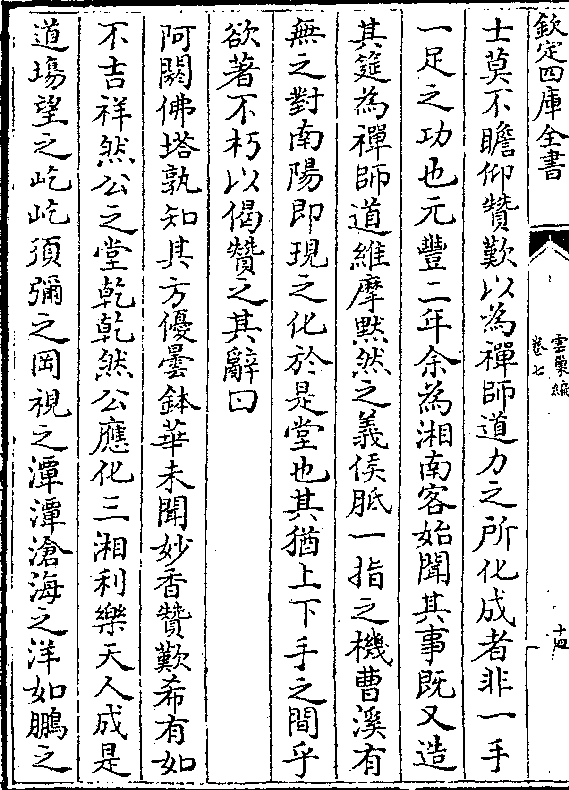 欽定四庫全書
雲巢編
卷七
十四
士莫不瞻仰贊歎以為禪師道力之所化成者非一手
一足之功也元豐二年余為湘南客始聞其事既又造
其筵為禪師道維摩黙然之義俟胝一指之機曹溪有
無之對南陽即現之化於是堂也其猶上下手之間乎
欲著不朽以偈贊之其辭曰
阿閦佛塔孰知其方優曇鉢華未聞妙香贊歎希有如
不吉祥然公之堂乾乾然公應化三湘利樂天人成是
道塲望之屹屹須彌之岡視之潭潭滄海之洋如鵬之